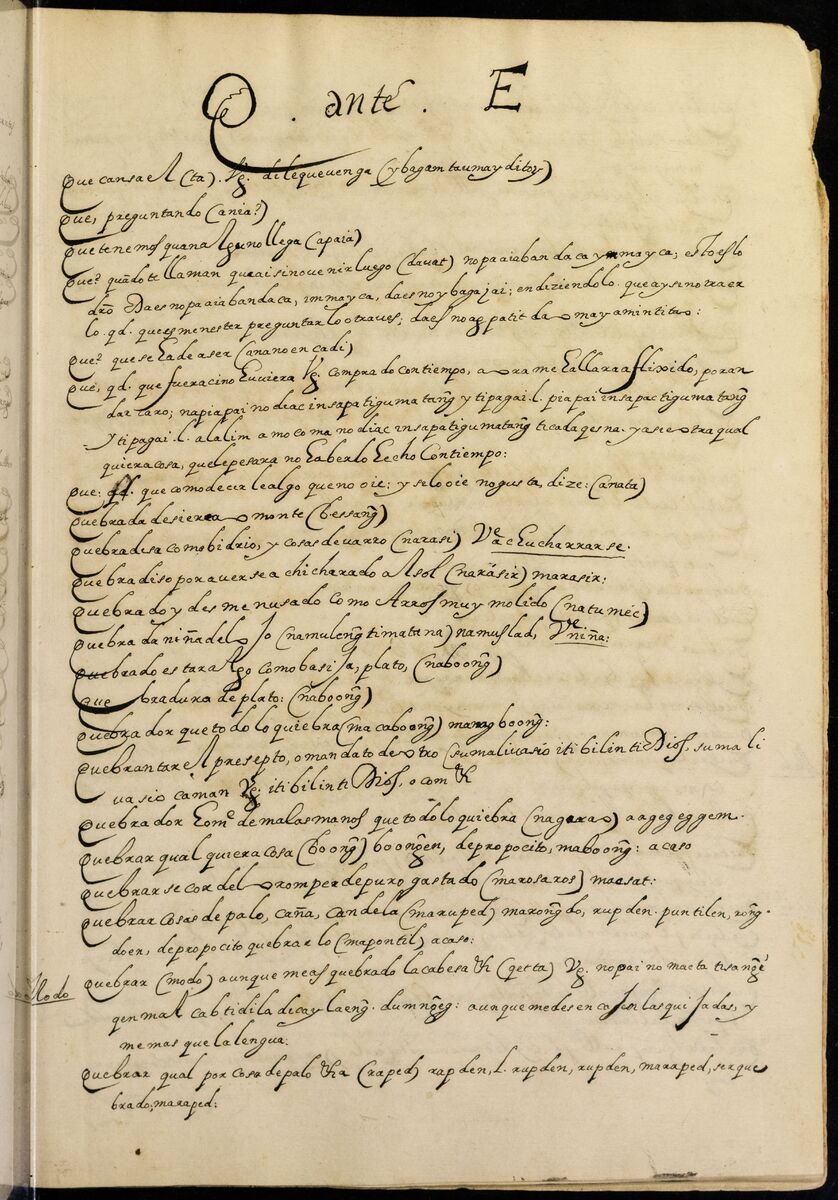 Q. ante. E
Que cansa el (ta). Vg. dile que venga (ybagam ta umay ditoy)
Que, preguntando (ania?)
Que tenemos quan alguno llega (apaia)
Que? quãdo te llaman que ai sino venir luego (davat) no pa aiaban da ca y may ca; esto es lo
dr̃o Da es no pa aiaban da ca, im may ca, da es noy bagajai; en diziendolo. que ay sino traer
lo. qd. que es menester preguntarlo otra ves; da es no ag patit da o may amintita:
Que? que se ha de aser (anano en cadi)
Que, qd. que fuera cino huviera Vg. comprado con tiempo, aora me hallara aflixido, por an
dar caro; napia pai no diac insapa tiguma tang̃ y tipagai .l. pia pai insapac tigumatang̃
y tipagai .l. alalim amo coma no diac insapa tigumatang̃ ticada qesna. ya si e otra qual
quiera cosa, que le pesara no haberlo hecho con tiempo:
Que. qd. que como decirle algo que no oie: y se lo oie no gusta, dize: (anata)
Quebrada de sierra o monte (bessang̃)
Quebradisa como bidrio, y cosas de varro (narasi) Vea cEucharrarse.
Quebradiso por averse achicharado al sol (narásir) marasir:
Quebrado y desmenusado como Arros muy molido (natuméc)
Quebrada niña del ojo (namuleng̃ timatana) namuslad, Ve niña:
Quebrado estar algo como basija, plato, (naboong̃)
Quebradura de plato: (naboong̃)
Quebrador que todo lo quiebra (macaboong̃) manag boong̃:
Quebrantar el presepto, o mandato de otro (sumalivasio iti bilin ti Dios, sumali
vasio caman Vg. iti bilin ti Dios, o com &
Quebrador hom.e de malas manos que todo lo quiebra (nagara) argegeggem.
Quebrar qual quiera cosa (boong̃) boong̃en, de propocito, maboong̃: acaso
Quebrarse cordel o romper de puro gastado (marosaros) maesat:
Quebrar cosas de palo, caña, candela (maruped) marong̃do, rupden. puntilen, rong̃-
doen, de propocito quebrarlo (mapontil) acaso:
Modo Quebrar (modo) aunque me as quebrado la cabesa & (qetta) Vg. no pai no maeta ti sang̃é
qen mal cabtidila decay laeng̃. dumng̃eg: aunque me desencajen las quijadas, y
me mas que la lengua:
Quebrar qual por cosa de palo &a (raped) rapden, l. rupden, rupden, maraped, ser que
brado, maraped: